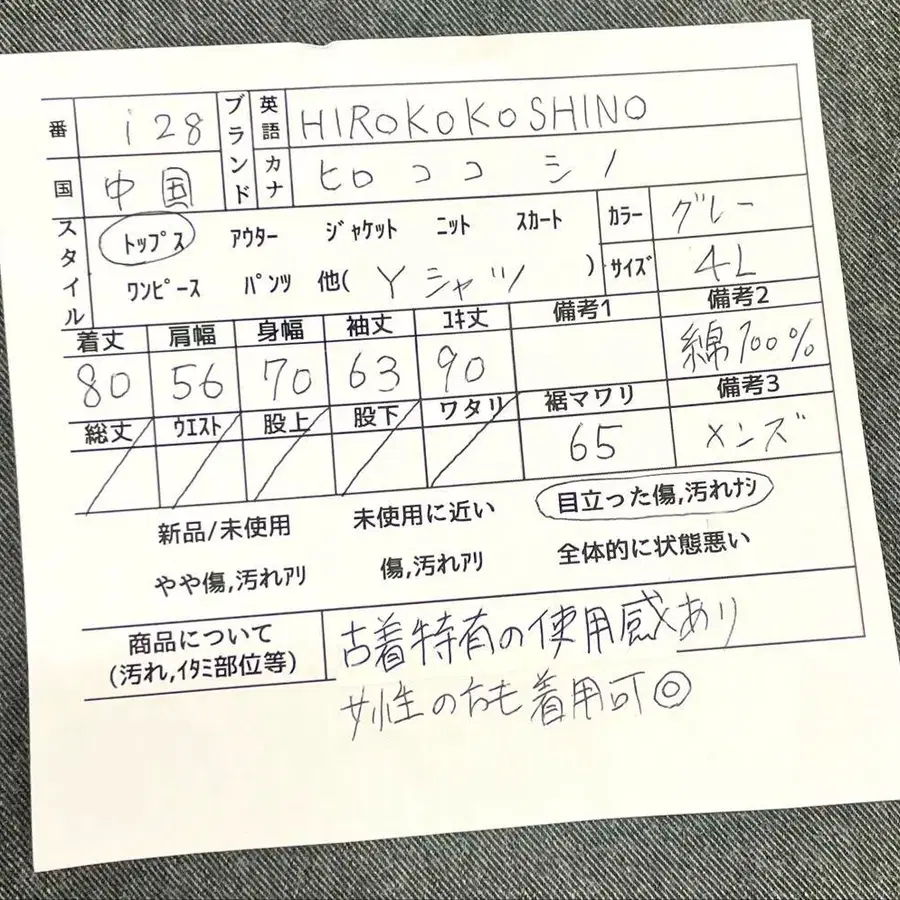 番 i28 ブランド 英語 HIROKOKOSHINO
国 中国 カナ ヒロココシノ
スタイル トップス アウター ジャケット ニット スカート カラー グレー
ワンピース パンツ 他( Yシャツ ) サイズ 4L
着丈 肩幅 身幅 袖丈 ユキ丈 備考1 備考2
80 56 70 63 90 綿100%
総丈 ウエスト 股上 股下 ワタリ 裾マワリ 備考3
65 メンズ
新品/未使用 未使用に近い 目立った傷,汚れナシ
やや傷,汚れアリ 傷,汚れアリ 全体的に状態悪い
商品について 古着特有の使用感あり
(汚れ,イタミ部位等)
女性の方も着用可◎